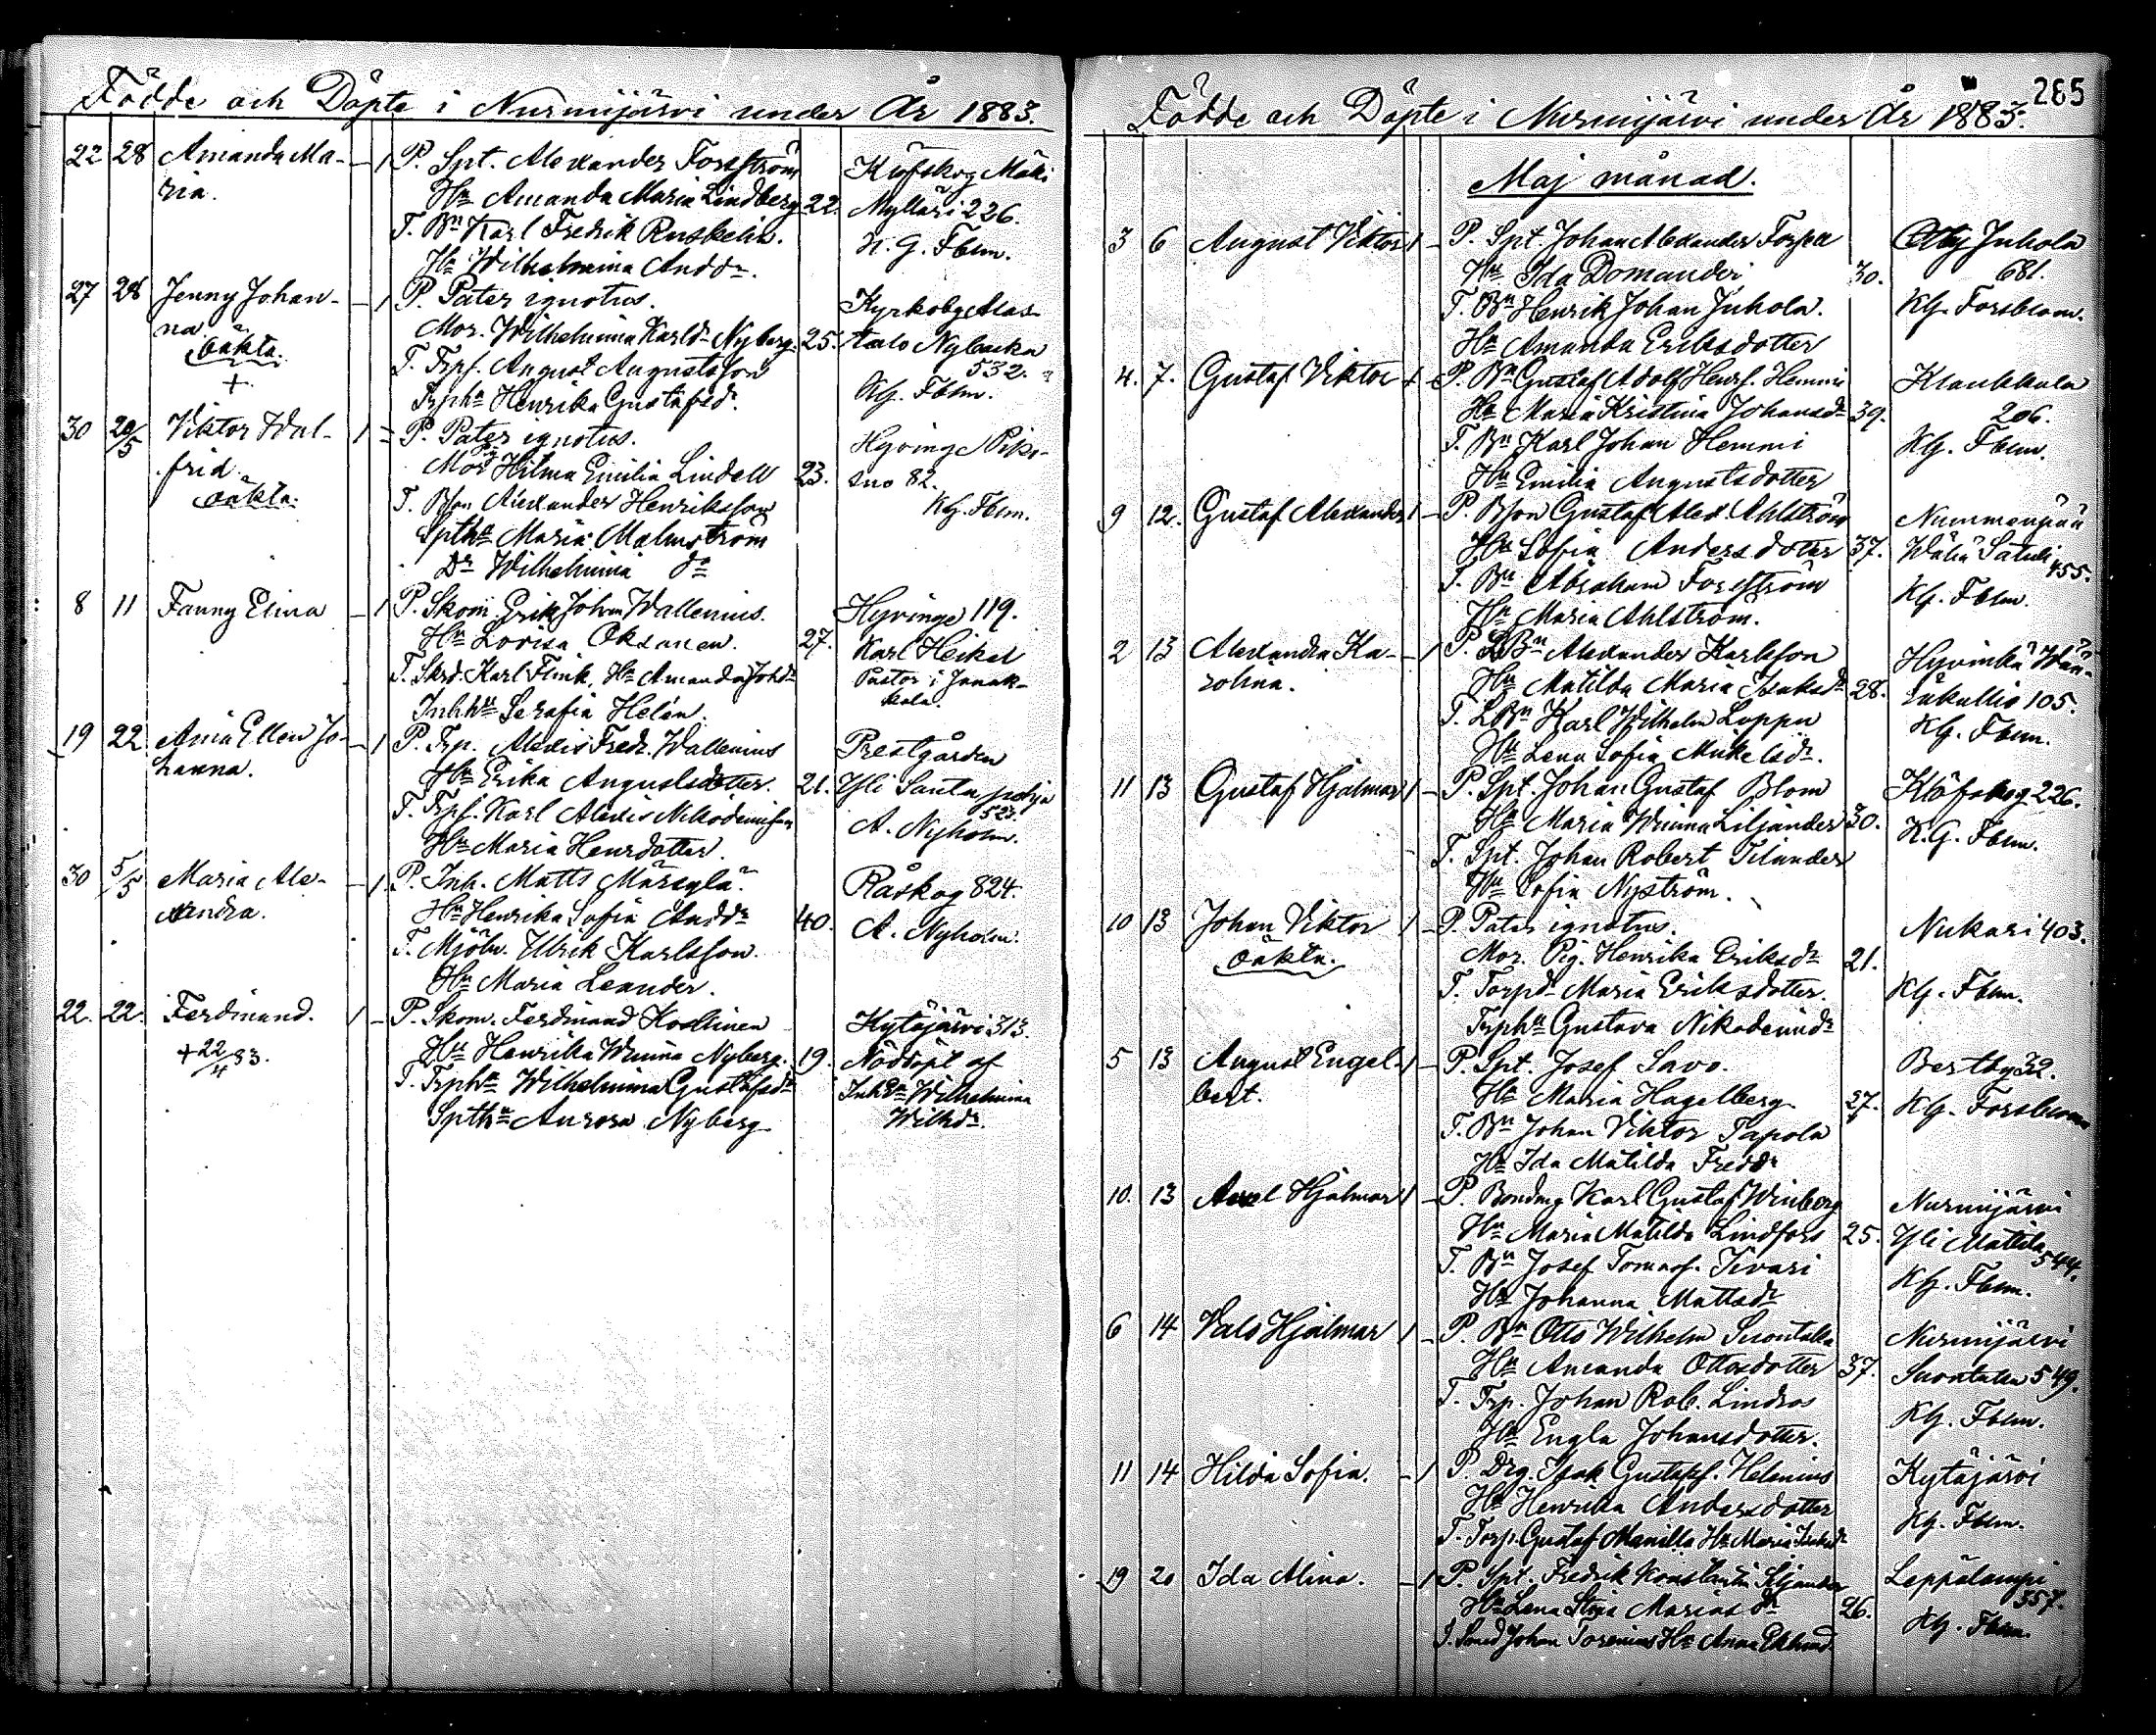 Födde och Döpte i Nurmijärvi under År 1883.
22 28 Amanda Ma- – 1 P. Spt. Alexander Forsström Klöfskog Mäki
ria. Hu Amanda Maria Lindberg 22. Mylläri 226.
T. Bn Karl Fredrik K. G. Fblm.
Hu Wilhelmina Andd.
27 28 Jenny Johan- – 1 P. Pater ignotus. Kyrkoby Alas-
na. Mor. Wilhelmina Karlsd. Nyberg. 25. talo Nybacka
oäkta. T. Trp. August Augustsson 532.
+ Trphu Henrika Gustafsd. Kg. Fblm.
30 20/5 Viktor Wal- 1 – P. Pater ignotus. Hyvinge
frid. Mor Pig Hilma Emilia Lindell 23. 82.
oäkta. T. Bson Alexander Henriksson Kg. Fblm.
Spthu Maria Malmström
Dr Wilhelmina do
8 11 Fanny Elina – 1 P. Skom. Erik Johan Wallenius. Hyvinge 119.
Hu Lovisa Oksanen. 27. Karl Heikel
T. Skrd. Karl Flink, Hu Amanda Johd. Pastor i Janak-
Inhhu Serafia Helén. kala.
19 22 Ania Ellen Jo- – 1 P. Trp. Alexis Fredr. Wallenius Prestgården
hanna. Hu Erika Augustsdotter. 21. Yli Santapohja
T. Trp. Karl Alexis Nikodemisson 523.
Hu Maria Henrdotter. A. Nyholm.
30 5/5 Maria Ale- – 1 P. Inh. Matts Märsylä. Råskog 824.
xandra. Hu Henrika Sofia Andd. 40. A. Nyholm.
T. Mjöln. Ulrik Karlsson.
Hu Maria Leander.
22. 22. Ferdinand. 1 – P. Skom. Ferdinand Koskinen Hytäjärvi 313.
+ 22/4 83. Hu Henrika Wmina Nyberg. 19. Nöddöpt af
T. Trphu Wilhelmina Gustafsd. Inh Wilhelmina
Spthu Aurora Nyberg Wilhd.
265
Födde och Döpte i Nurmijärvi under År 1883.
Maj månad.
3 6 August Viktor 1 – P. Spt. Johan Alexander Forsell Juhola
Hu Ida Domander 30. 681.
T. Bn Henrik Johan Juhola. Kg. Forsblom.
Hu Amanda Eriksdotter
4. 7. Gustaf Viktor 1 – P. Bn Gustaf Adolf Henrs. Hemmi Klaukkala
Hu Maria Kristina Johansd. 39. 206.
T. Bn Karl Johan Hemmi Kg. Fblm.
Hu Emilia Augustsdotter
9 12. Gustaf Alexander 1 – P. Bson Gustaf Alex. Ahlström Nummenpää
Hu Sofia Andersdoter 37. Wähä Satuli 455.
T. Bn Abraham Forsström Kg. Fblm.
Hu Maria Ahlström.
2 13 Alexandra Ka- – 1 P. LBn Alexander Karlsson Hyvinkä
rolina. Hu Matilda Maria Isaksd. 28. 105.
T. LBn Karl Wilhelm Loppu Kg. Fblm.
Hu Lena Sofia Mikelsd.
11 13 Gustaf Hjalmar 1 – P. Spt. Johan Gustaf Blom Klöfskog 226.
Hu Maria Wmina Liljander 30. K. G. Fblm.
T. Spt. Johan Robert Tilander
Hu Sofia Nyström.
10 13 Johan Viktor 1 – P. Pater ignotus. Nukari 403.
oäkta. Mor. Pig. Henrika Eriksd. 21.
T. Torpd. Maria Eriksdotter. Kg. Fblm.
Trphu Gustava Nikodemid.
5 13 August Engel- 1 – P. Spt. Josef Savo. Bertby 32.
bert. Hu Maria Hagelberg 27. Kg. Forsblom
T. Bn Johan Viktor Tapola
Hu Ida Matilda Fredd.
10. 13 Axel Hjalmar 1 – P. Bondmg Karl Gustaf Winberg Nurmijärvi
Hu Maria Matilda Lindfors 25. Yli Mattila 544.
T. Bn Josef Tomass. Tivari Kg. Fblm.
Hu Johanna Mattsd.
6 14 Valo Hjalmar 1 – P. Bn Otto Wilhelm Suontakka Nurmijärvi
Hu Amanda Ottosdotter 37. Suontakka 549.
T. Trp. Johan Rob. Lindros Kg. Fblm.
Hu Engla Johansdotter.
11 14 Hilda Sofia. – 1 P. Drg. Isak Gustafs. Helenius Kytäjärvi
Hu Henrika Andersdotter Kg. Fblm.
T. Torp. Gustaf Manilla Hu Maria Isaksd.
19 20 Ida Alina. – 1 P. Spt. Fredrik Konstantin Siljander Leppälampi
Hu Lena Stina Mariasd. 26. 357.
T. Smed Johan Torenius Hu Anna Eklund. Kg. Fblm.